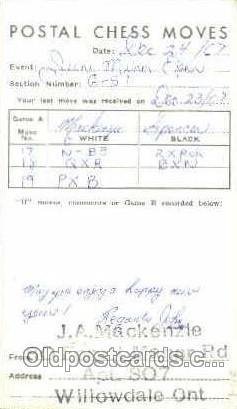 POSTAL CHESS MOVES
Date: Dec 24/67
Event:
Section Number: G-51
Your last move was received on Dec. 23/67
Game A
Move No. Mackenzie Spencer
WHITE BLACK
17 N-B3 RXPch
18 QXR BXN
19 PXB
"If" moves, comments or Game B recorded below:
May you enjoy a happy new
years! Regards
J.A.Mackenzie
From Rd
Oldpostcards.com
Address Apt 807
Willowdale Ont